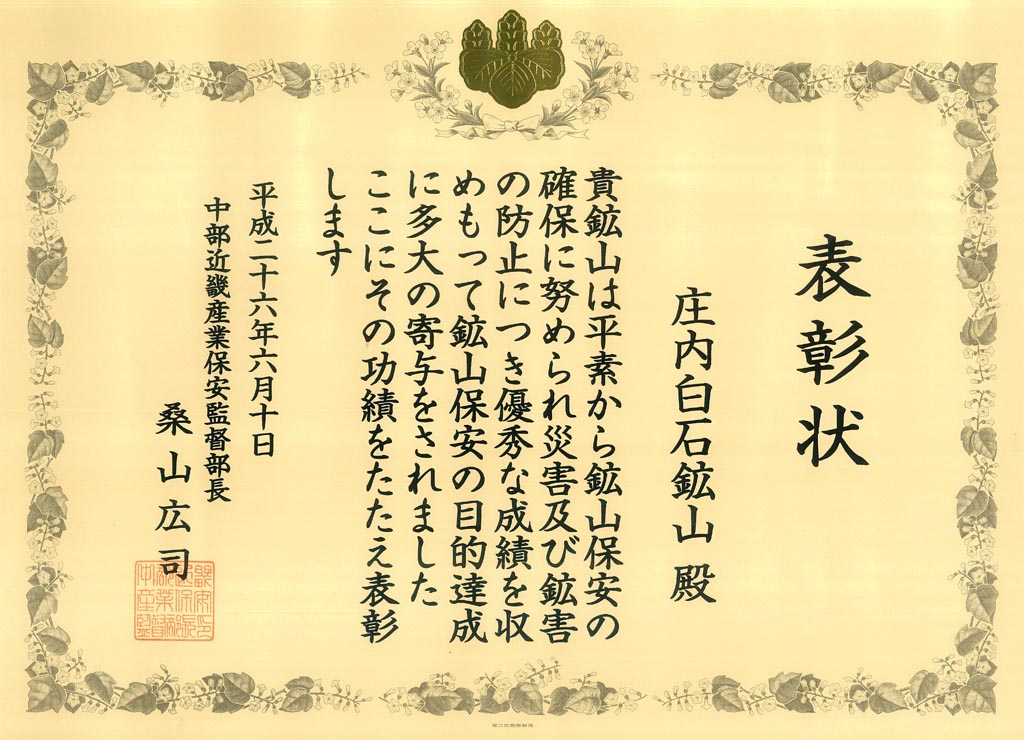 表彰状
庄内白石鉱山 殿
貴鉱山は平素から鉱山保安の
確保に努められ災害及び鉱害
の防止につき優秀な成績を収
めもって鉱山保安の目的達成
に多大の寄与をされました
ここにその功績をたたえ表彰
します
平成二十六年六月十日
中部近畿産業保安監督部長
桑山広司